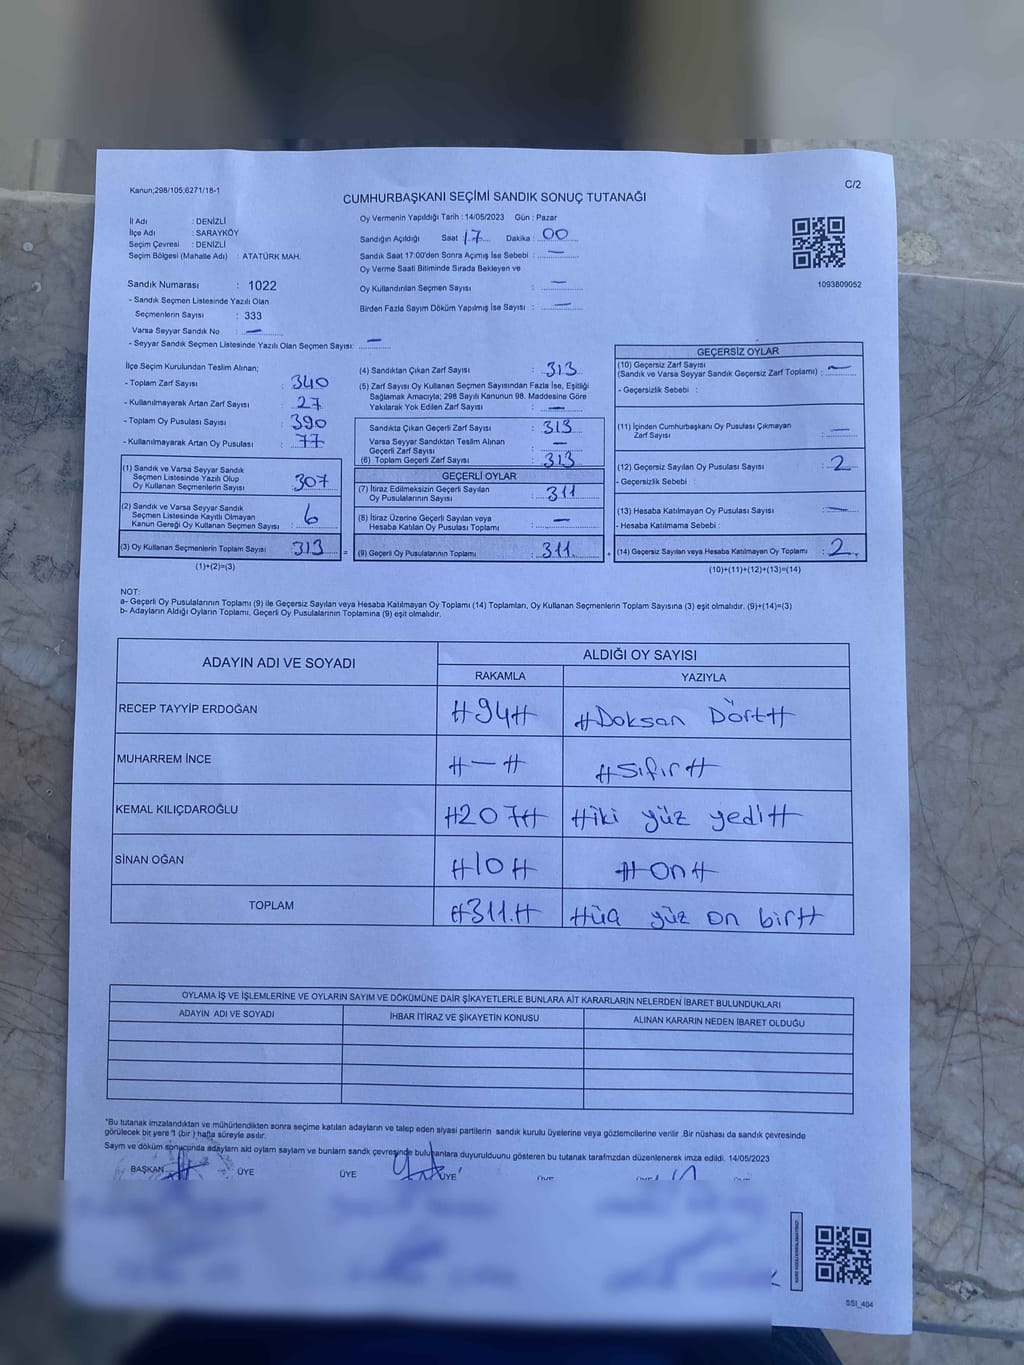 Kanun;298/105;6271/18-1
C/2
CUMHURBAŞKANI SEÇİMİ SANDIK SONUÇ TUTANAĞI
İl Adı : DENİZLİ
İlçe Adı : SARAYKÖY
Seçim Çevresi : DENİZLİ
Seçim Bölgesi (Mahalle Adı) : ATATÜRK MAH.
Sandık Numarası : 1022
- Sandık Seçmen Listesinde Yazılı Olan
Seçmenlerin Sayısı : 333
Varsa Seyyar Sandık No : —
- Seyyar Sandık Seçmen Listesinde Yazılı Olan Seçmen Sayısı: —
Oy Vermenin Yapıldığı Tarih : 14/05/2023 Gün : Pazar
Sandığın Açıldığı Saat 17 Dakika : 00
Sandık Saat 17:00'den Sonra Açımış İse Sebebi : —
Oy Verme Saati Bitiminde Sırada Bekleyen ve
Oy Kullandırılan Seçmen Sayısı : —
Birden Fazla Sayım Döküm Yapılmış İse Sayısı : —
1093809052
İlçe Seçim Kurulundan Teslim Alınan;
- Toplam Zarf Sayısı : 340
- Kullanılmayarak Artan Zarf Sayısı : 27
- Toplam Oy Pusulası Sayısı : 390
- Kullanılmayarak Artan Oy Pusulası : 77
(1) Sandık ve Varsa Seyyar Sandık
Seçmen Listesinde Yazılı Olup
Oy Kullanan Seçmenlerin Sayısı : 307
(2) Sandık ve Varsa Seyyar Sandık
Seçmen Listesinde Kayıtlı Olmayan
Kanun Gereği Oy Kullanan Seçmen Sayısı : 6
(3) Oy Kullanan Seçmenlerin Toplam Sayısı : 313
(1)+(2)=(3)
(4) Sandıktan Çıkan Zarf Sayısı : 313
(5) Zarf Sayısı Oy Kullanan Seçmen Sayısından Fazla İse, Eşitliği
Sağlamak Amacıyla; 298 Sayılı Kanunun 98. Maddesine Göre
Yakılarak Yok Edilen Zarf Sayısı : —
Sandıkta Çıkan Geçerli Zarf Sayısı : 313
Varsa Seyyar Sandıktan Teslim Alınan
Geçerli Zarf Sayısı : —
(6) Toplam Geçerli Zarf Sayısı : 313
GEÇERLİ OYLAR
(7) İtiraz Edilmeksizin Geçerli Sayılan
Oy Pusulalarının Sayısı : 311
(8) İtiraz Üzerine Geçerli Sayılan veya
Hesaba Katılan Oy Pusulası Toplamı : —
= (9) Geçerli Oy Pusulalarının Toplamı : 311.
GEÇERSİZ OYLAR
(10) Geçersiz Zarf Sayısı
(Sandık ve Varsa Seyyar Sandık Geçersiz Zarf Toplamı) : —
- Geçersizlik Sebebi :
(11) İçinden Cumhurbaşkanı Oy Pusulası Çıkmayan
Zarf Sayısı : —
(12) Geçersiz Sayılan Oy Pusulası Sayısı : 2
- Geçersizlik Sebebi :
(13) Hesaba Katılmayan Oy Pusulası Sayısı : —
- Hesaba Katılmama Sebebi :
+ (14) Geçersiz Sayılan veya Hesaba Katılmayan Oy Toplamı : 2
(10)+(11)+(12)+(13)=(14)
NOT:
a- Geçerli Oy Pusulalarının Toplamı (9) ile Geçersiz Sayılan veya Hesaba Katılmayan Oy Toplamı (14) Toplamları, Oy Kullanan Seçmenlerin Toplam Sayısına (3) eşit olmalıdır. (9)+(14)=(3)
b- Adayların Aldığı Oyların Toplamı, Geçerli Oy Pusulalarının Toplamına (9) eşit olmalıdır.
ADAYIN ADI VE SOYADI
ALDIĞI OY SAYISI
RAKAMLA YAZIYLA
RECEP TAYYİP ERDOĞAN #94# #Doksan Dört#
MUHARREM İNCE #—# #Sıfır#
KEMAL KILIÇDAROĞLU #207# #iki yüz yedi#
SİNAN OĞAN #10# #on#
TOPLAM #311.# #üç yüz on bir#
OYLAMA İŞ VE İŞLEMLERİNE VE OYLARIN SAYIM VE DÖKÜMÜNE DAİR ŞİKAYETLERLE BUNLARA AİT KARARLARIN NELERDEN İBARET BULUNDUKLARI
ADAYIN ADI VE SOYADI İHBAR İTİRAZ VE ŞİKAYETİN KONUSU ALINAN KARARIN NEDEN İBARET OLDUĞU
*Bu tutanak imzalandıktan ve mühürlendikten sonra seçime katılan adayların ve talep eden siyasi partilerin sandık kurulu üyelerine veya gözlemcilerine verilir .Bir nüshası da sandık çevresinde
görülecek bir yere 1 (bir ) hafta süreyle asılır.
Sayım ve döküm sonucunda adayların ald oyların sayların ve bunların sandk çevresinde bulunanlara duyurulduunu gösteren bu tutanak tarafımzdan düzenlenerek imza edildi. 14/05/2023
BAŞKAN ÜYE ÜYE ÜYE
SSI_404